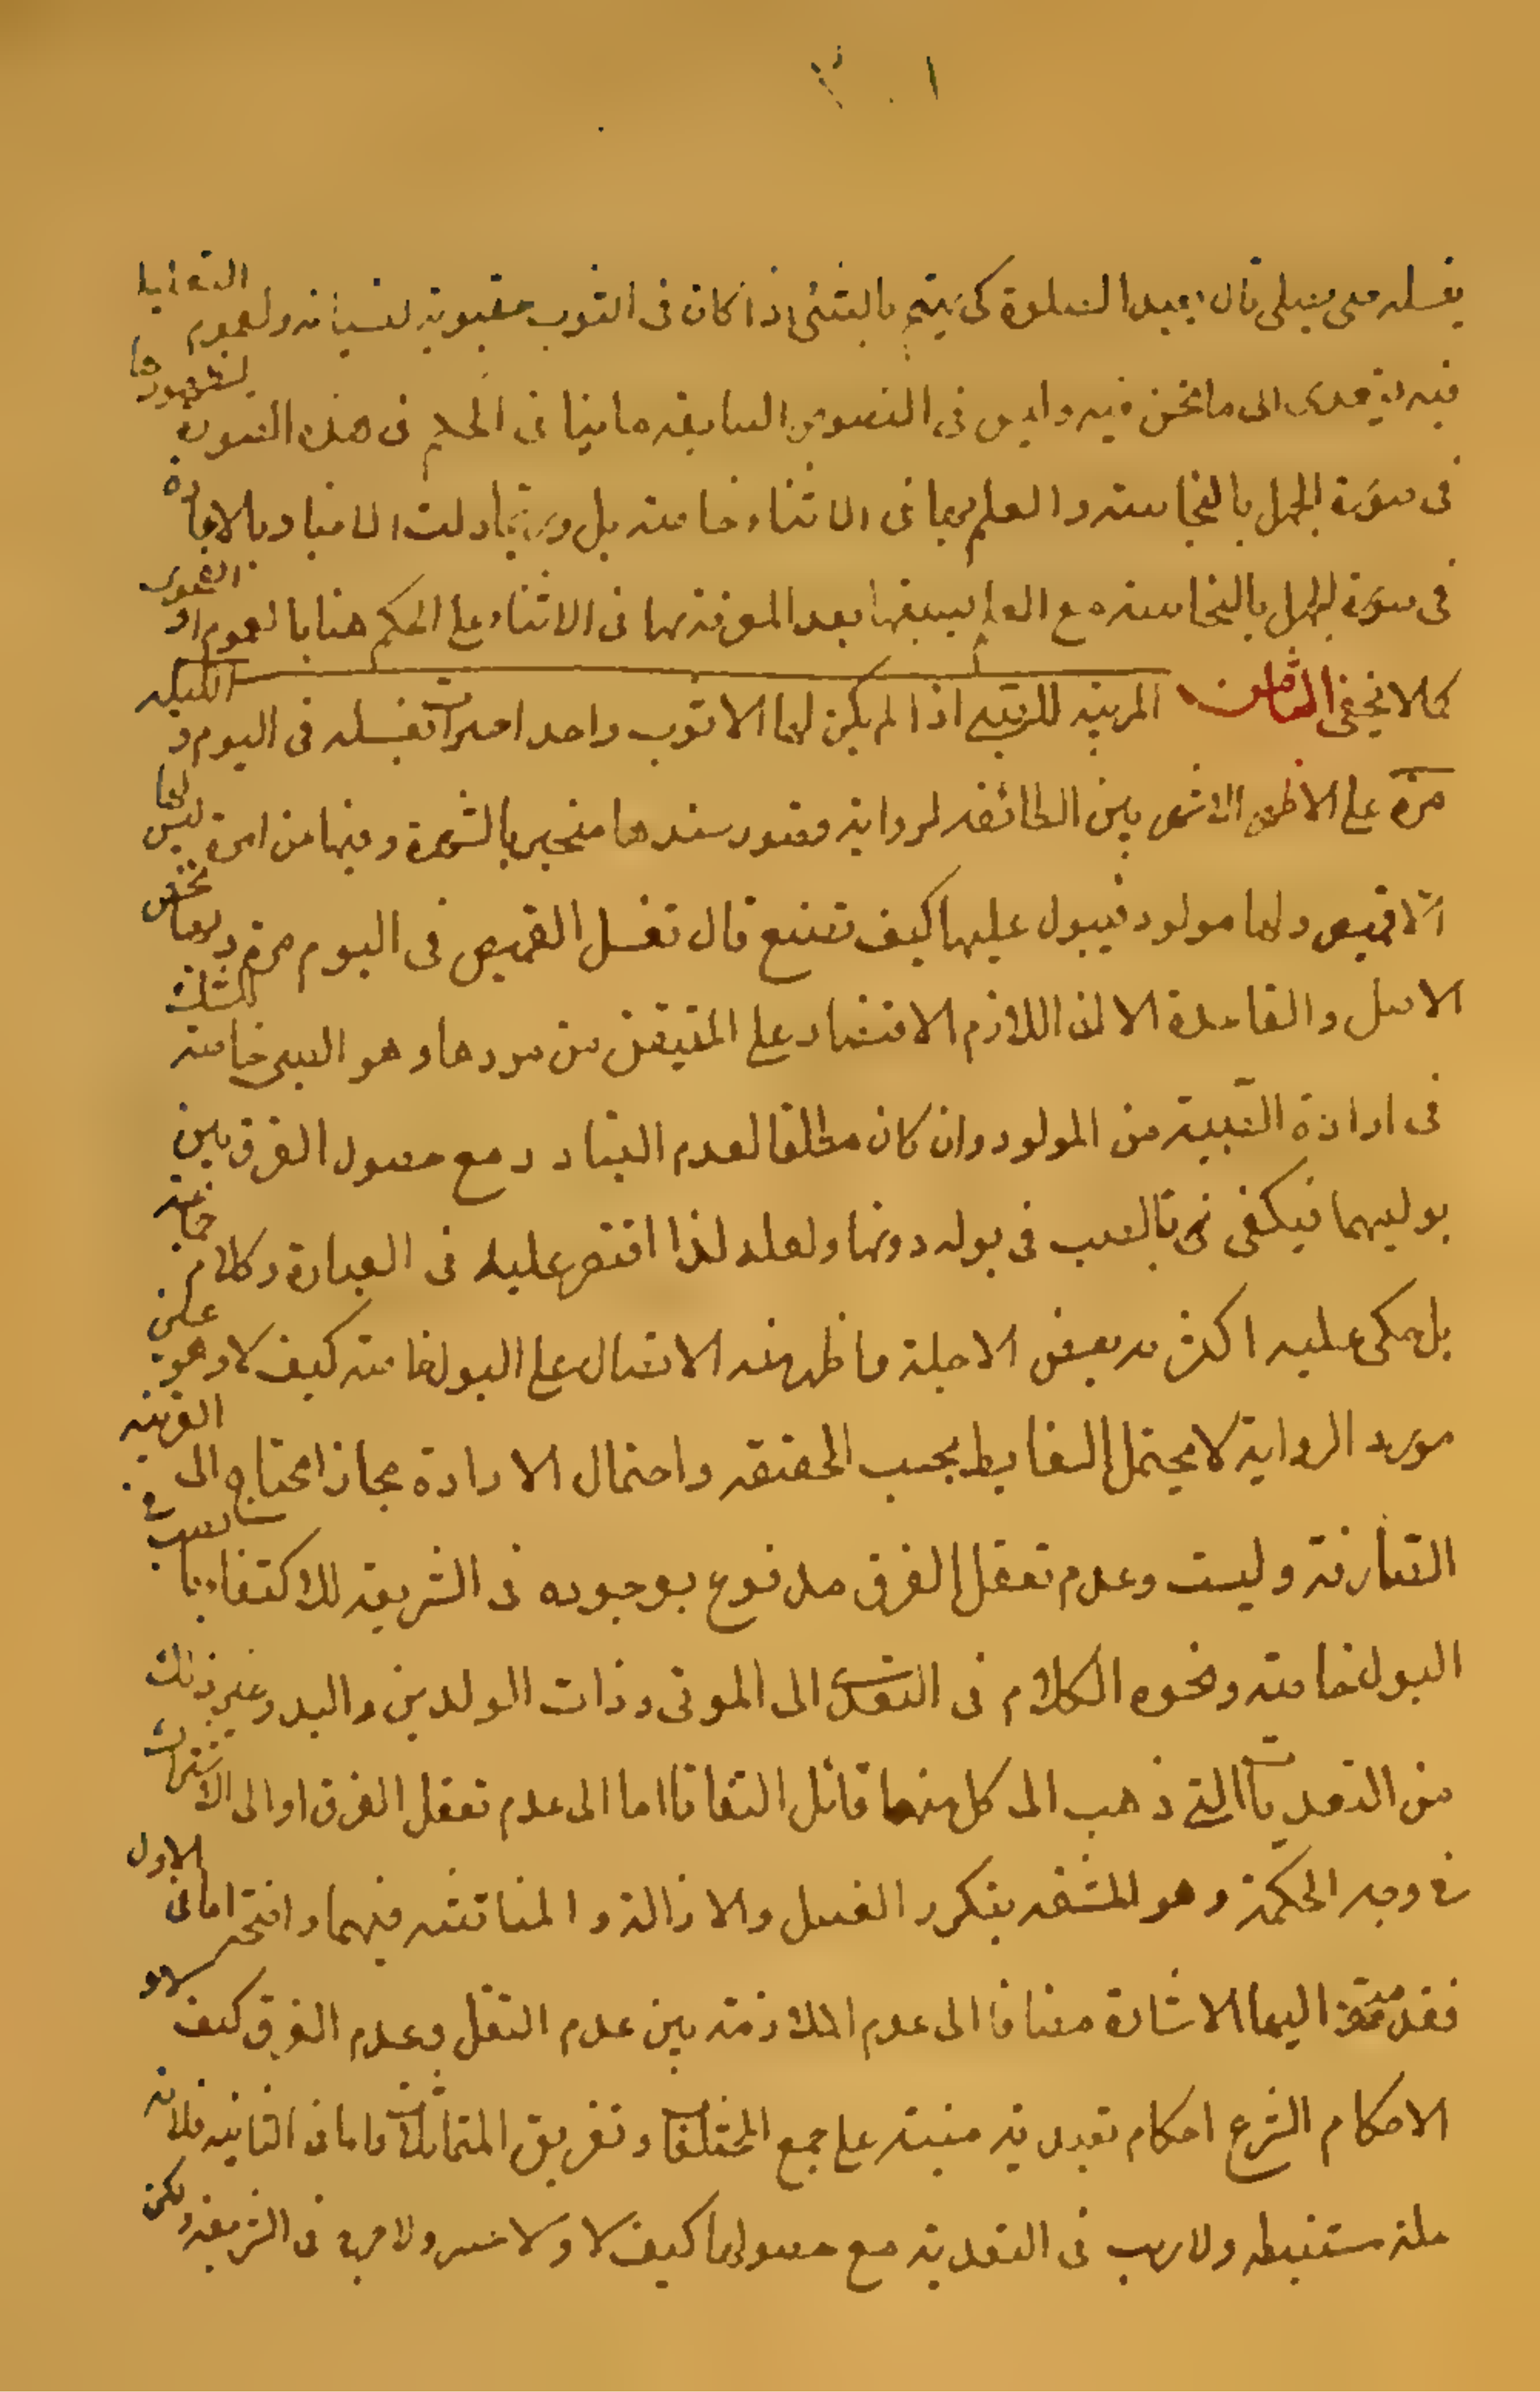 يغسله حتى يصلى قال يعيد الصلوة كى يهتم بالشئ اذا كان فى الثوب عقوبة لنسيانه ولعموم
فيه يتعدى الى ما نحن فيه وليس فى النصوص السابقه ما ينافى الحكم فى هذه الصورة لشهودها
فى صورة الجهل بالنجاسته والعلم بها فى الاثناء خاصته بل وربما دلت الاخبار بالاعادة
فى صورة الجهل بالنجاسته مع العلم بسبقها بعد المعرفة بها فى الاثناء على الحكم هنا بالعموم او الفحوى
كما لا يخفى الثامن المربيه للصبى اذا لم يكن لها الا ثوب واحد اجتزات بغسله فى اليوم و الليله
مرة على الاظهر الاشهر بين الطائفه لرواية قصور سندها منجبر بالشهرة وفيها عن امرة ليس لها
الا قميص ولها مولود فيبول عليها كيف تصنع قال تغسل القميص فى اليوم مرة وبها نخص
الاصل والقاعدة الا ان اللازم الاقتصار على المتيقن من موردها وهو الصبى خاصته للشك
فى ارادة الصبية من المولود وان كان مطلقا لعدم التبادر مع حصول الفرق بين
بوليهما فيكفى فى بالصب فى بوله دونها ولعله لذا اقتصر عليه فى العبارة وكلام جماعته
بل حكى عليه اكثر بعض الاجلة ما ظهر منه الاقتصار على البول خاصته كيف لا وهو
مورد الرواية لا يحتمل الغايط بحسب الحقيقه واحتمال الارادة مجازا محتاج الى القرينه
الصارفة وليست وعدم تعقل الفرق مدفوع بوجوده فى الشريعه للاكتفاء بالصب فى
البول خاصته ونحوه الكلام فى التعدى الى المربى وذات الولدين والبدن وغير ذلك
من التعديات التى ذهب الى كل منها قائل التفاتا اما الى عدم تعقل الفرق او الى الاشتراك
فى وجه الحكمة وهو المشقه بتكرر الغسل والازالة والمناقشه فيهما واضحه اما فى الاول
فقد مرت اليها الاشارة مضافا الى عدم الملازمة بين عدم التعقل وعدم الفرق كيف لا و
الاحكام الشرع احكام تعبديه مبنيته على جمع المختلفات وتفريق المتماثلات واما فى الثانيه فلانه
علة مستنبطه ولا ريب فى التعديه مع حصولها كيف لا ولا عسر ولا حرج فى الشريعه ولكن